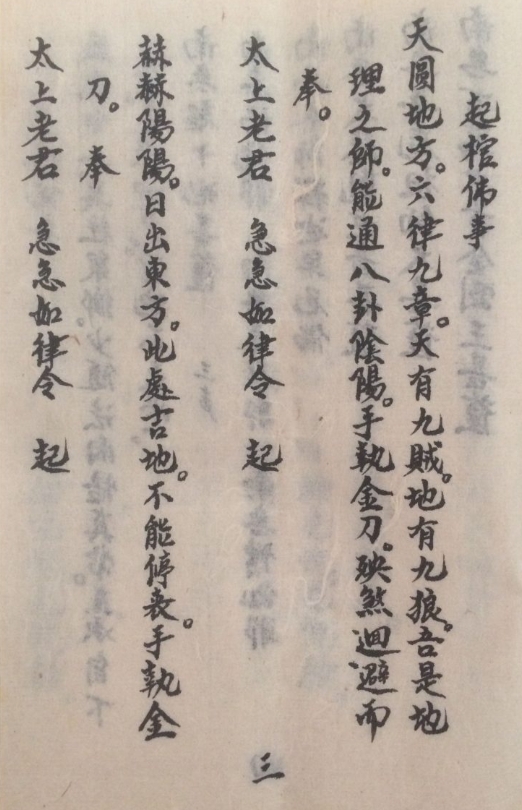 起棺佛事
天圓地方。六律九章。天有九賊。地有九狼。吾是地
理之師。能通八卦陰陽。手執金刀。殃煞迴避而
奉。
太上老君　急急如律令　起
赫赫陽陽。日出東方。此處吉地。不能停喪。手執金
刀。　奉
太上老君　急急如律令　起
三